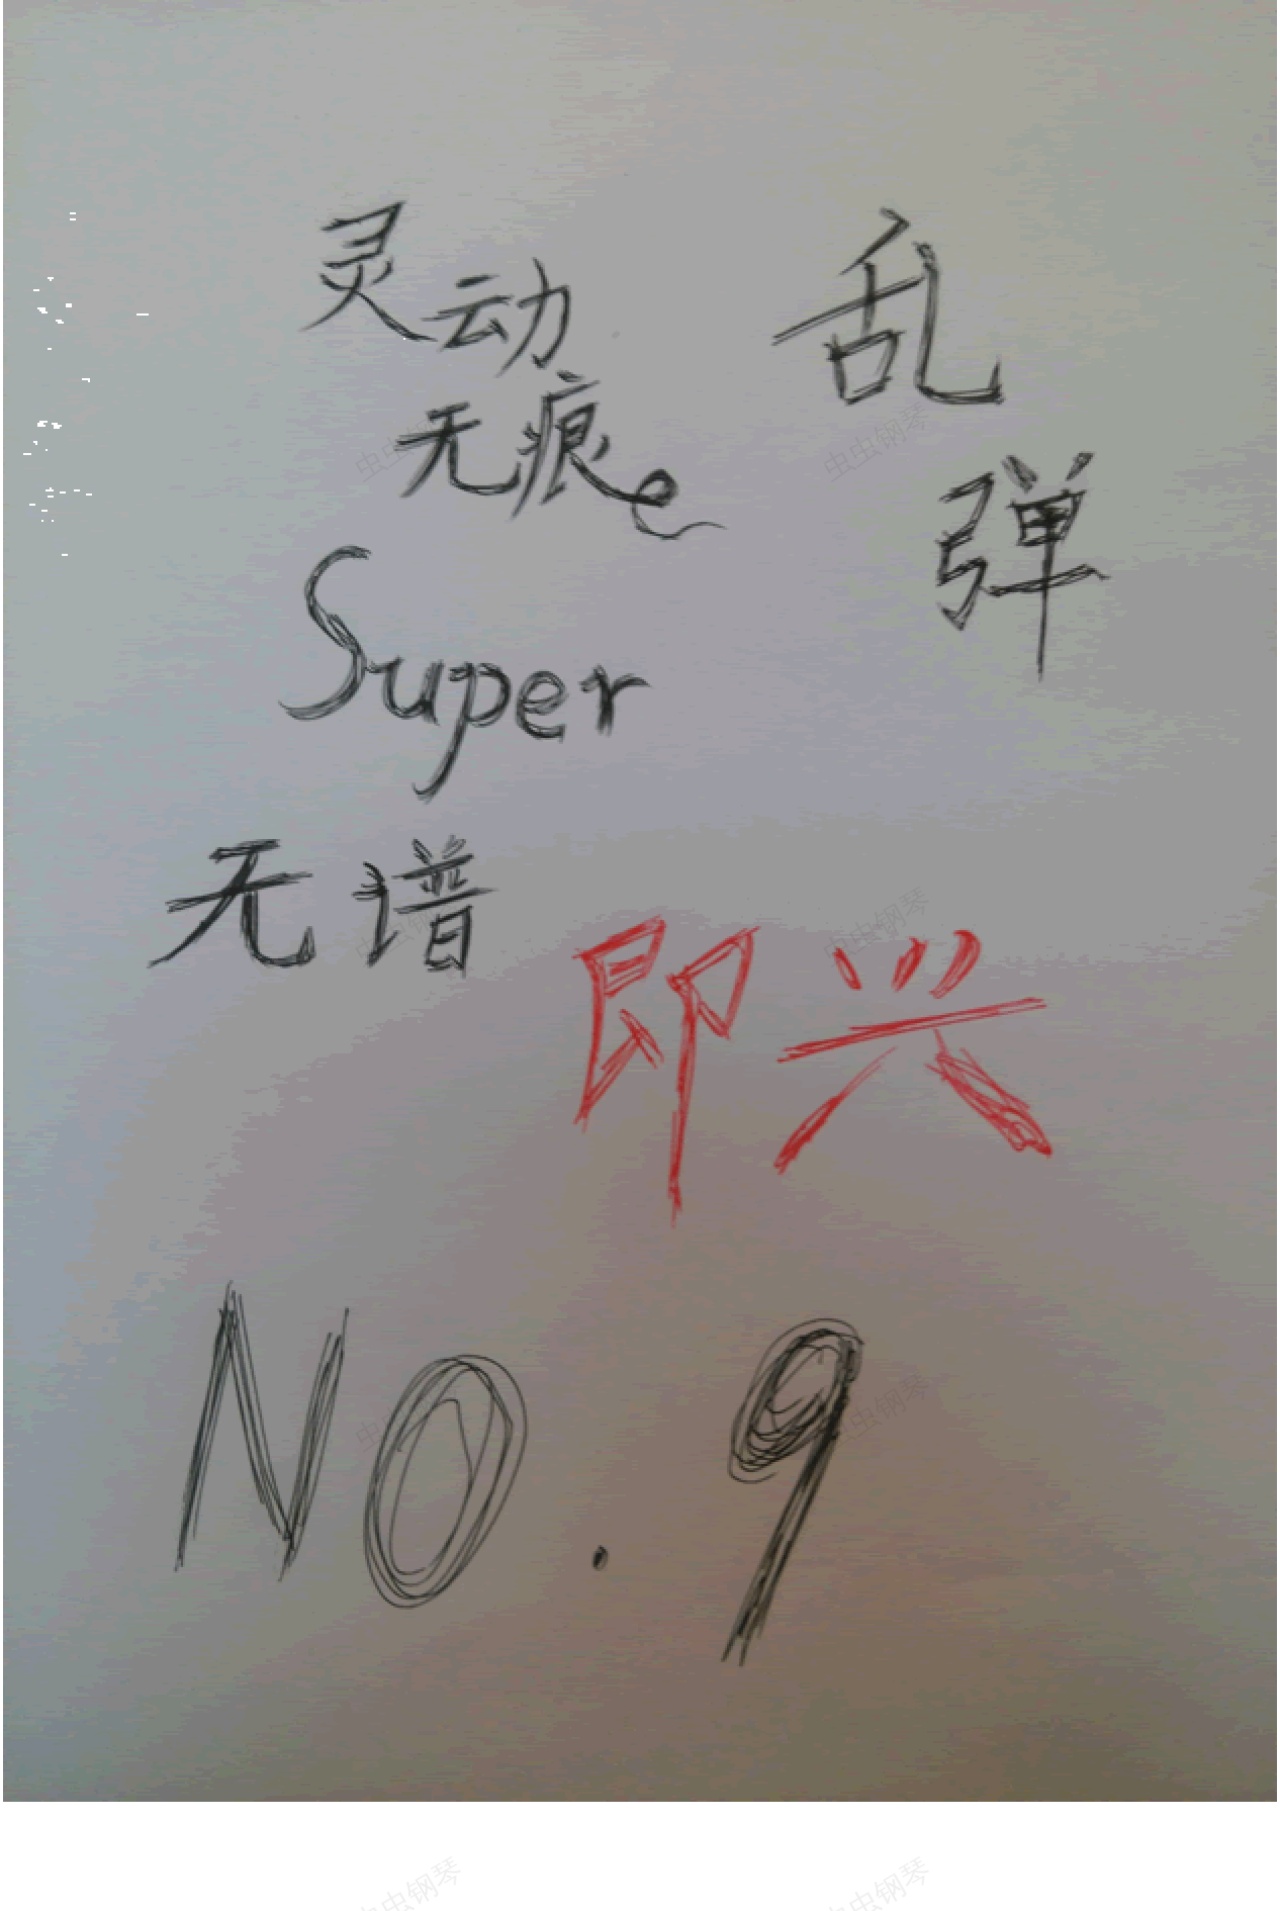 灵动
无痕
乱
弹
Super
无谱
即兴
NO.9
虫虫钢琴
虫虫钢琴
虫虫钢琴
虫虫钢琴
虫虫钢琴
虫虫钢琴
虫虫钢琴
虫虫钢琴